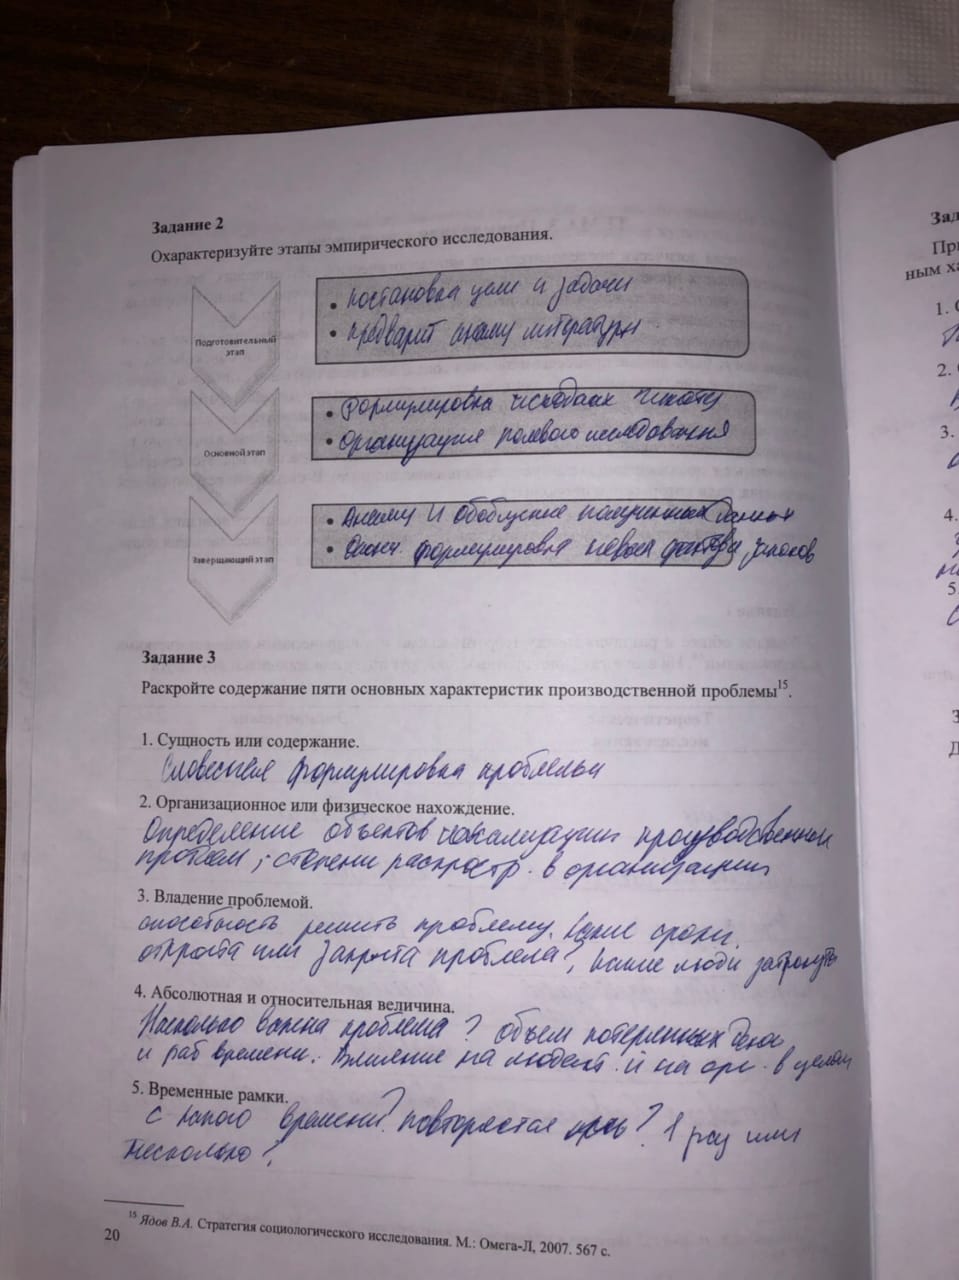 Задание 2
Охарактеризуйте этапы эмпирического исследования.
Подготовительный
этап
• постановка цели и задачи
• предварит анализ литературы
Основной этап
• формулировка исходных
• организация полевого исследования
Завершающий этап
• Анализ и обобщение полученных данных
• формулировка новых
Задание 3
Раскройте содержание пяти основных характеристик производственной проблемы¹⁵.
1. Сущность или содержание.
Словесная формулировка проблемы
2. Организационное или физическое нахождение.
Определение объектов локализации производственной
проблем, степени распростр. в организации
3. Владение проблемой.
способность решить проблему. Какие сроки.
открыта или закрыта проблема? какие люди затронуты
4. Абсолютная и относительная величина.
Насколько важна проблема? объем потерянных денег
и раб времени. Влияние на людей и на орг. в целом
5. Временные рамки.
с какого времени? повторяется ? 1 раз или
несколько?
¹⁵ Ядов В.А. Стратегия социологического исследования. М.: Омега-Л, 2007. 567 с.
20
Зад
При
ным ха
1. С
2.
3.
4.
5.